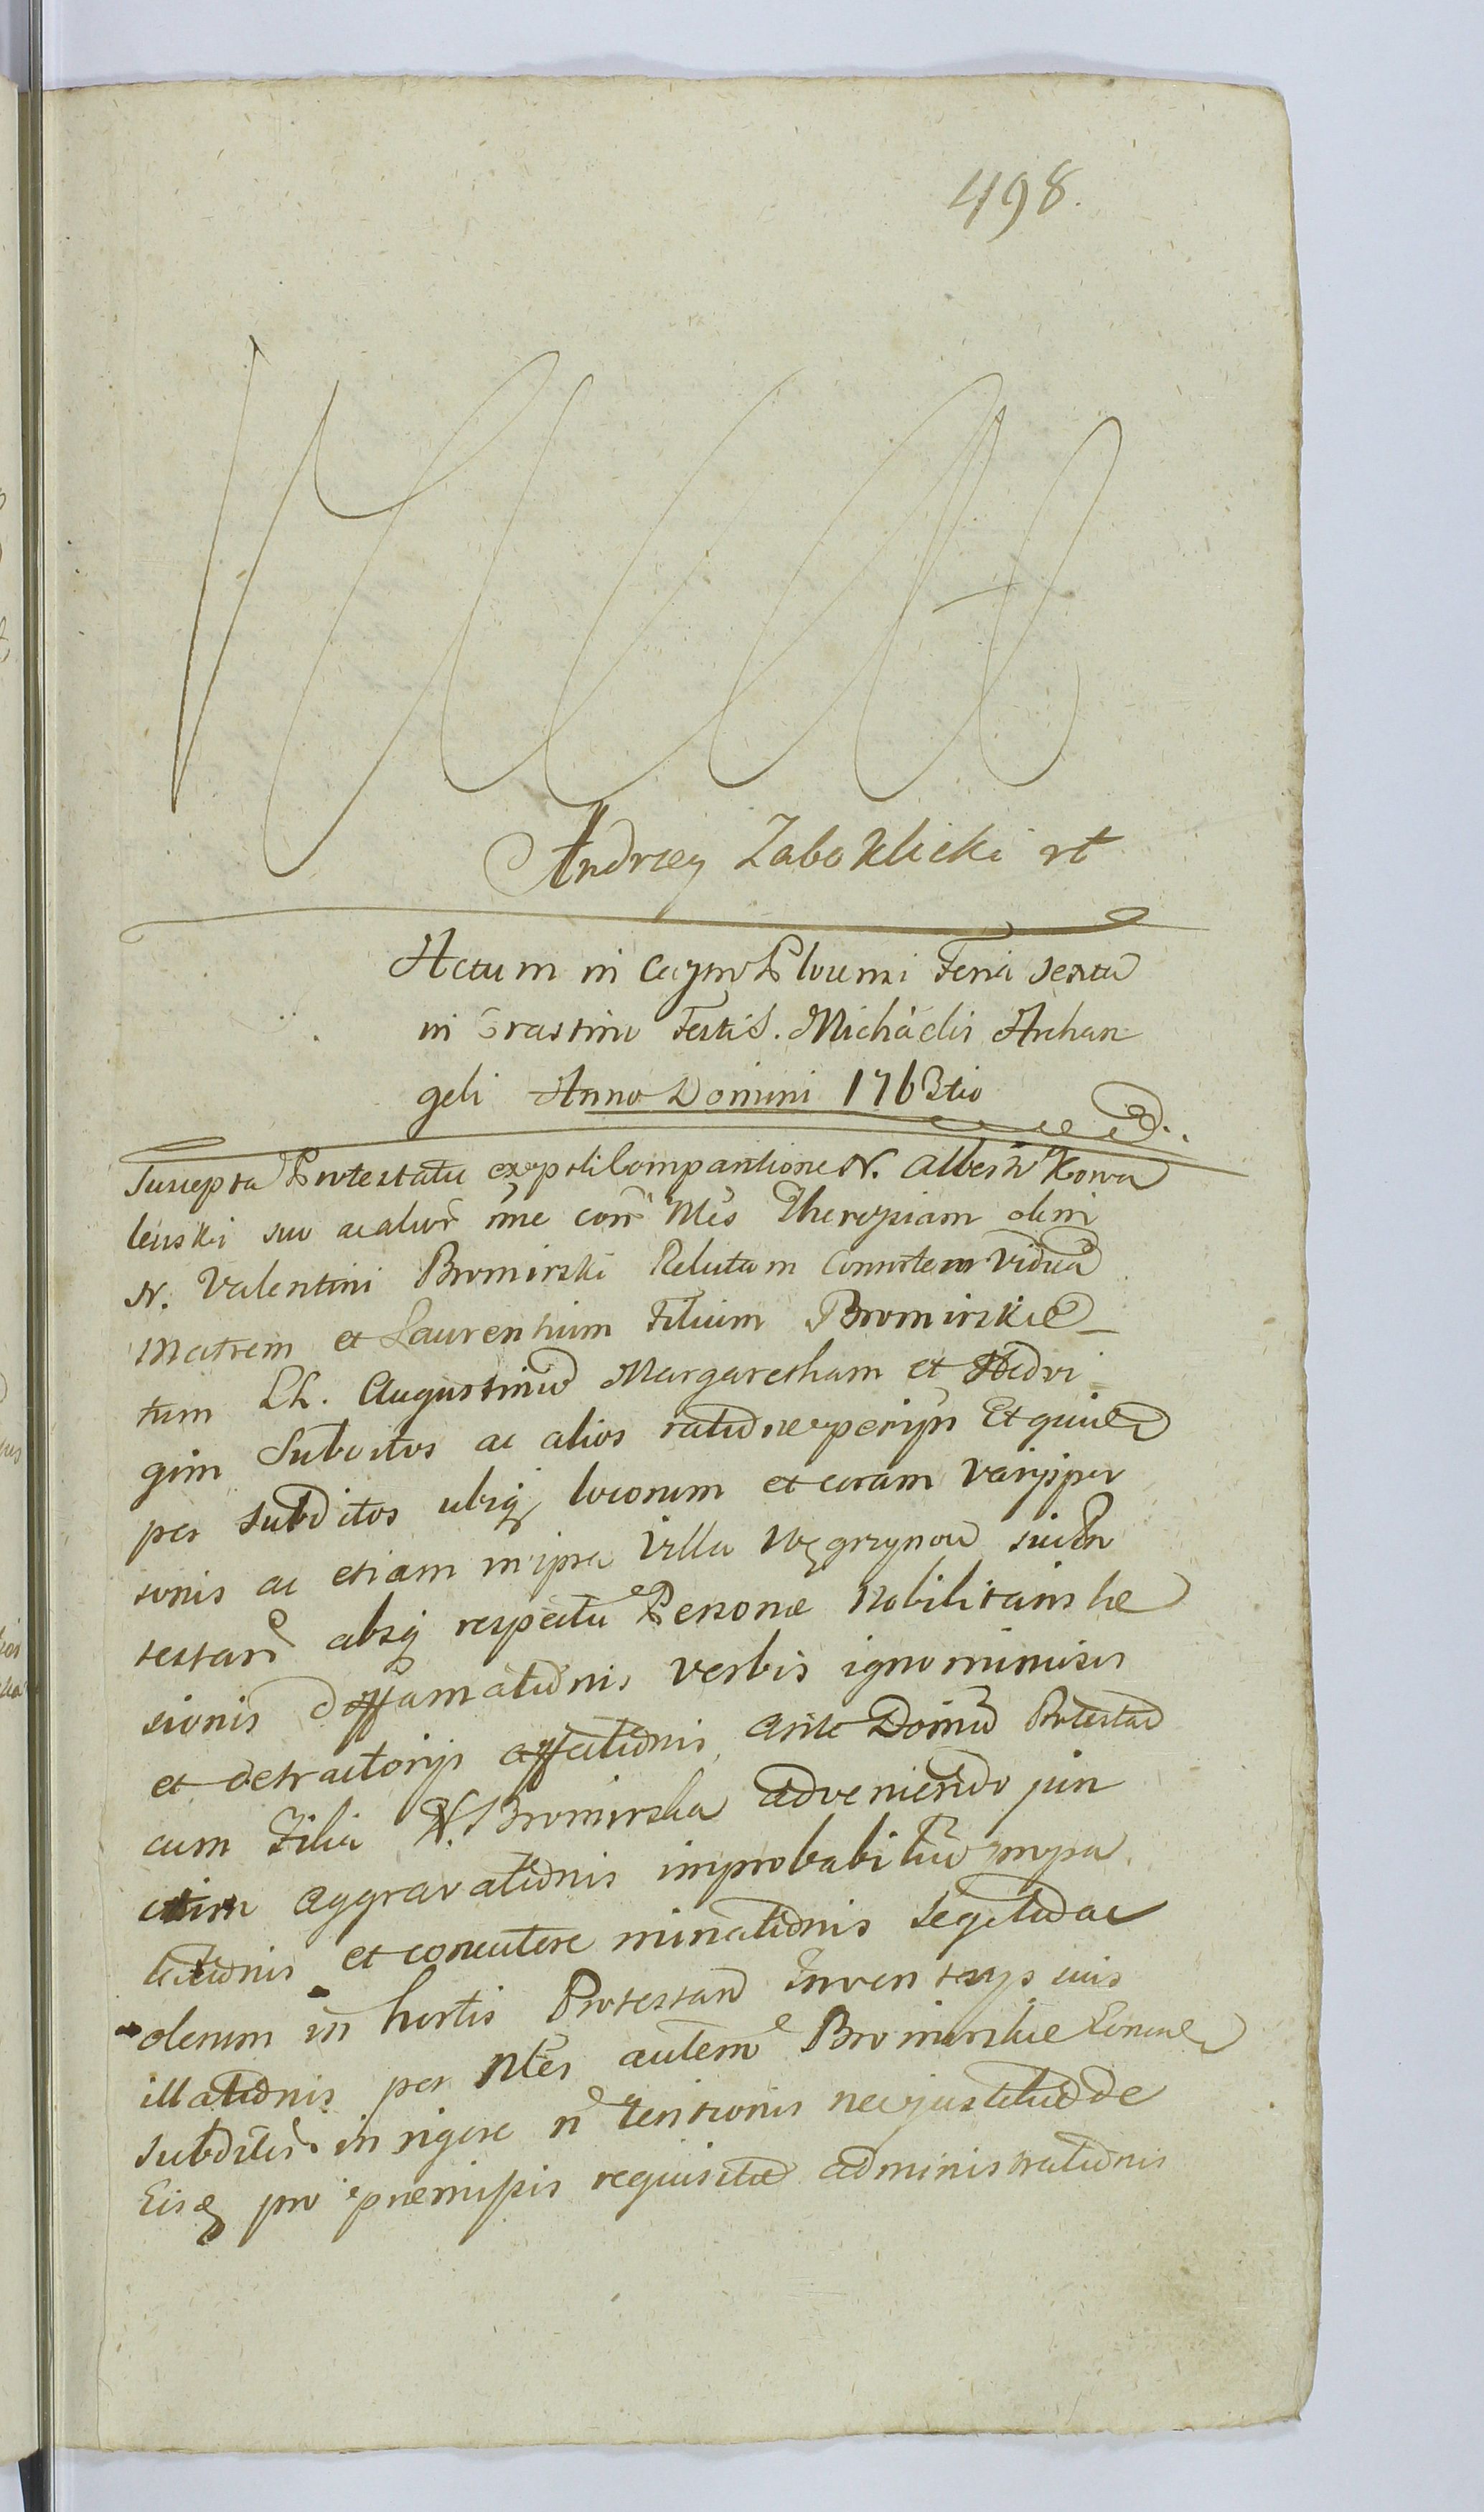 498.
Andrzey Zaboklicki rt
Actum in Castro Plocensi Feria Sexta
in Crastino Festi S. Michäelis Archan
geli Anno Domini 1763tio
Suscepta Protestatio ex psli Compantione N. Alberti Kowa
lewski suo ac alior̃ ñne con̄ Nles Theresiam olim
N. Valentini Bromirski Relictam Consortem Viduã
Matrem et Laurentium Filium Bromirskie
tum Lh. Augustinũ Margaretham et Hedvi
gim Subditos ac alios
per subditos ubiq locorum et coram varijs per
sonis ac etiam in ipsa Villa Węgrzynow
absq respectu Personæ Nobilitaris læ
sionis diffamatiõnis verbis ignominiosis
et detractorijs affectiõnis, ante Domũ Protestañ
cum Filia N. Bromirska adveniendo jun
ctim aggravatiõnis improbabiliũ
et concutere minatiõnis Segetũ ac
olerum in hortis Protestañ
illatiõnis per Nles autem Bromirskie
in rigore ñ tentionis nec justitiæ de
Eisq pro præmissis requisitæ administratiõnis